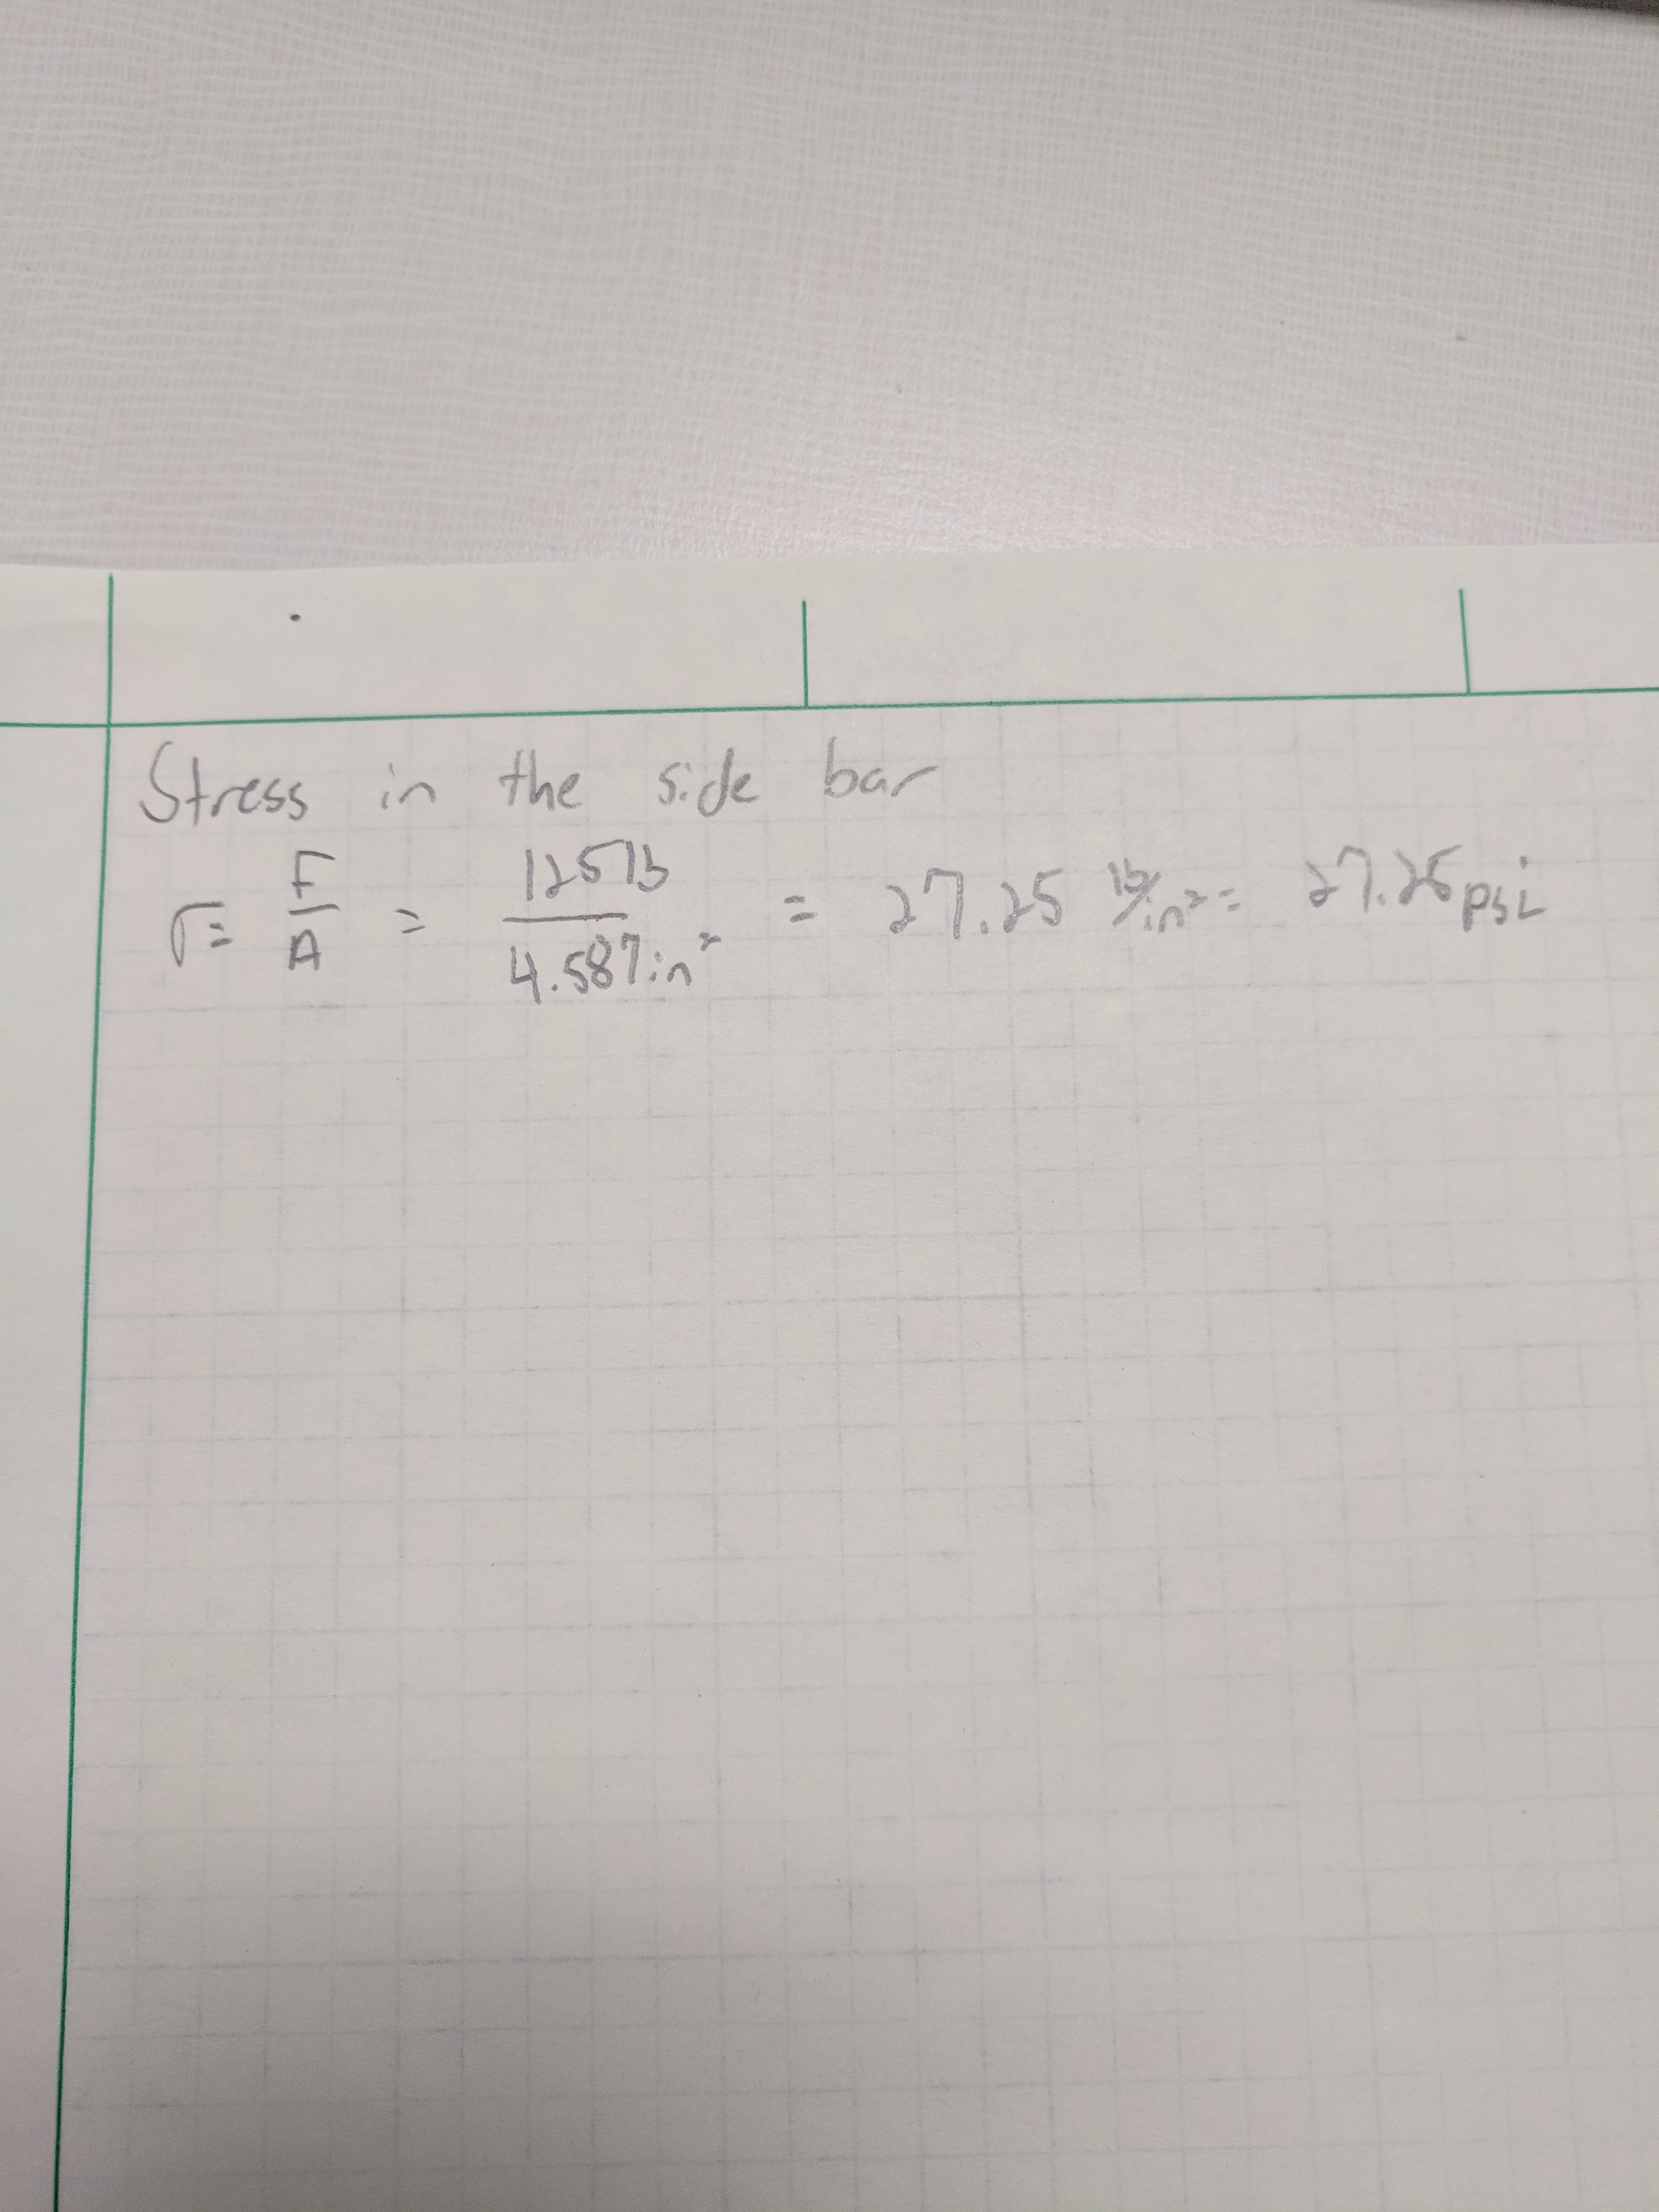 Stress in the side bar
σ = F/A = 125lb / 4.587in² = 27.25 lb/in² = 27.25 psi